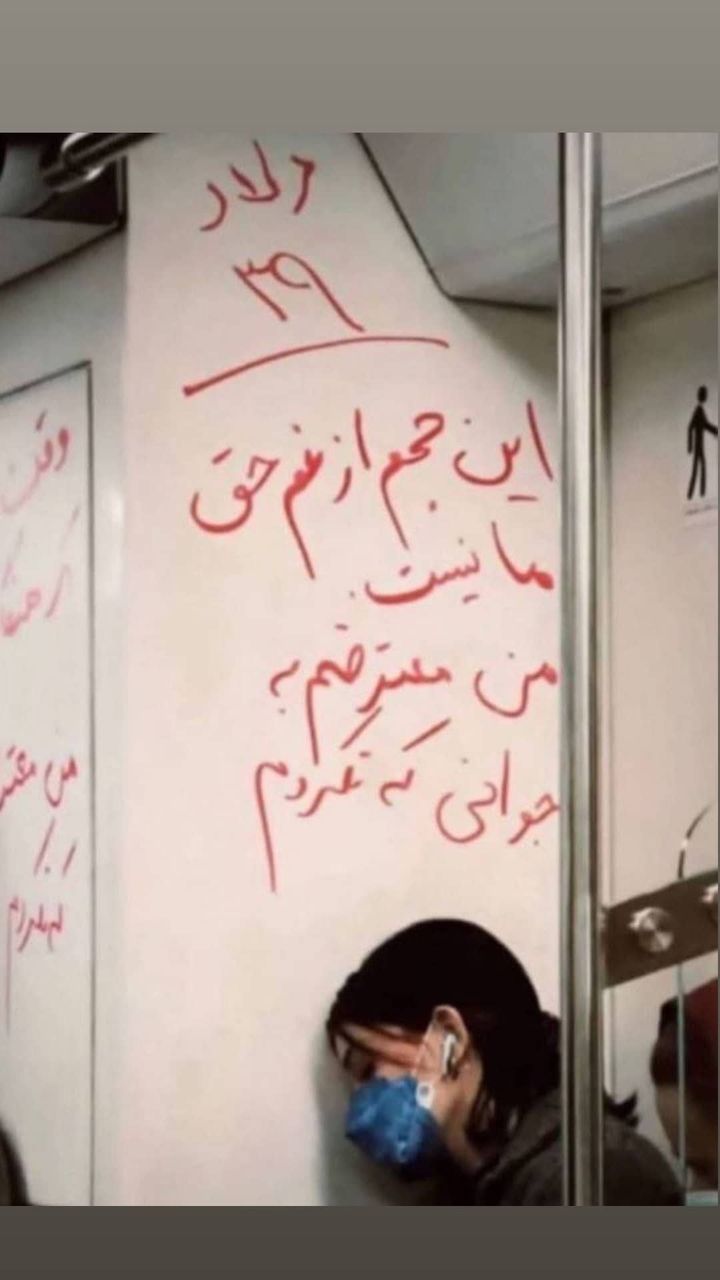 دلار
۳۹
این حجم از غم حق
ما نیست.
من معترضم به
جوانی که نکردم
وقت
من